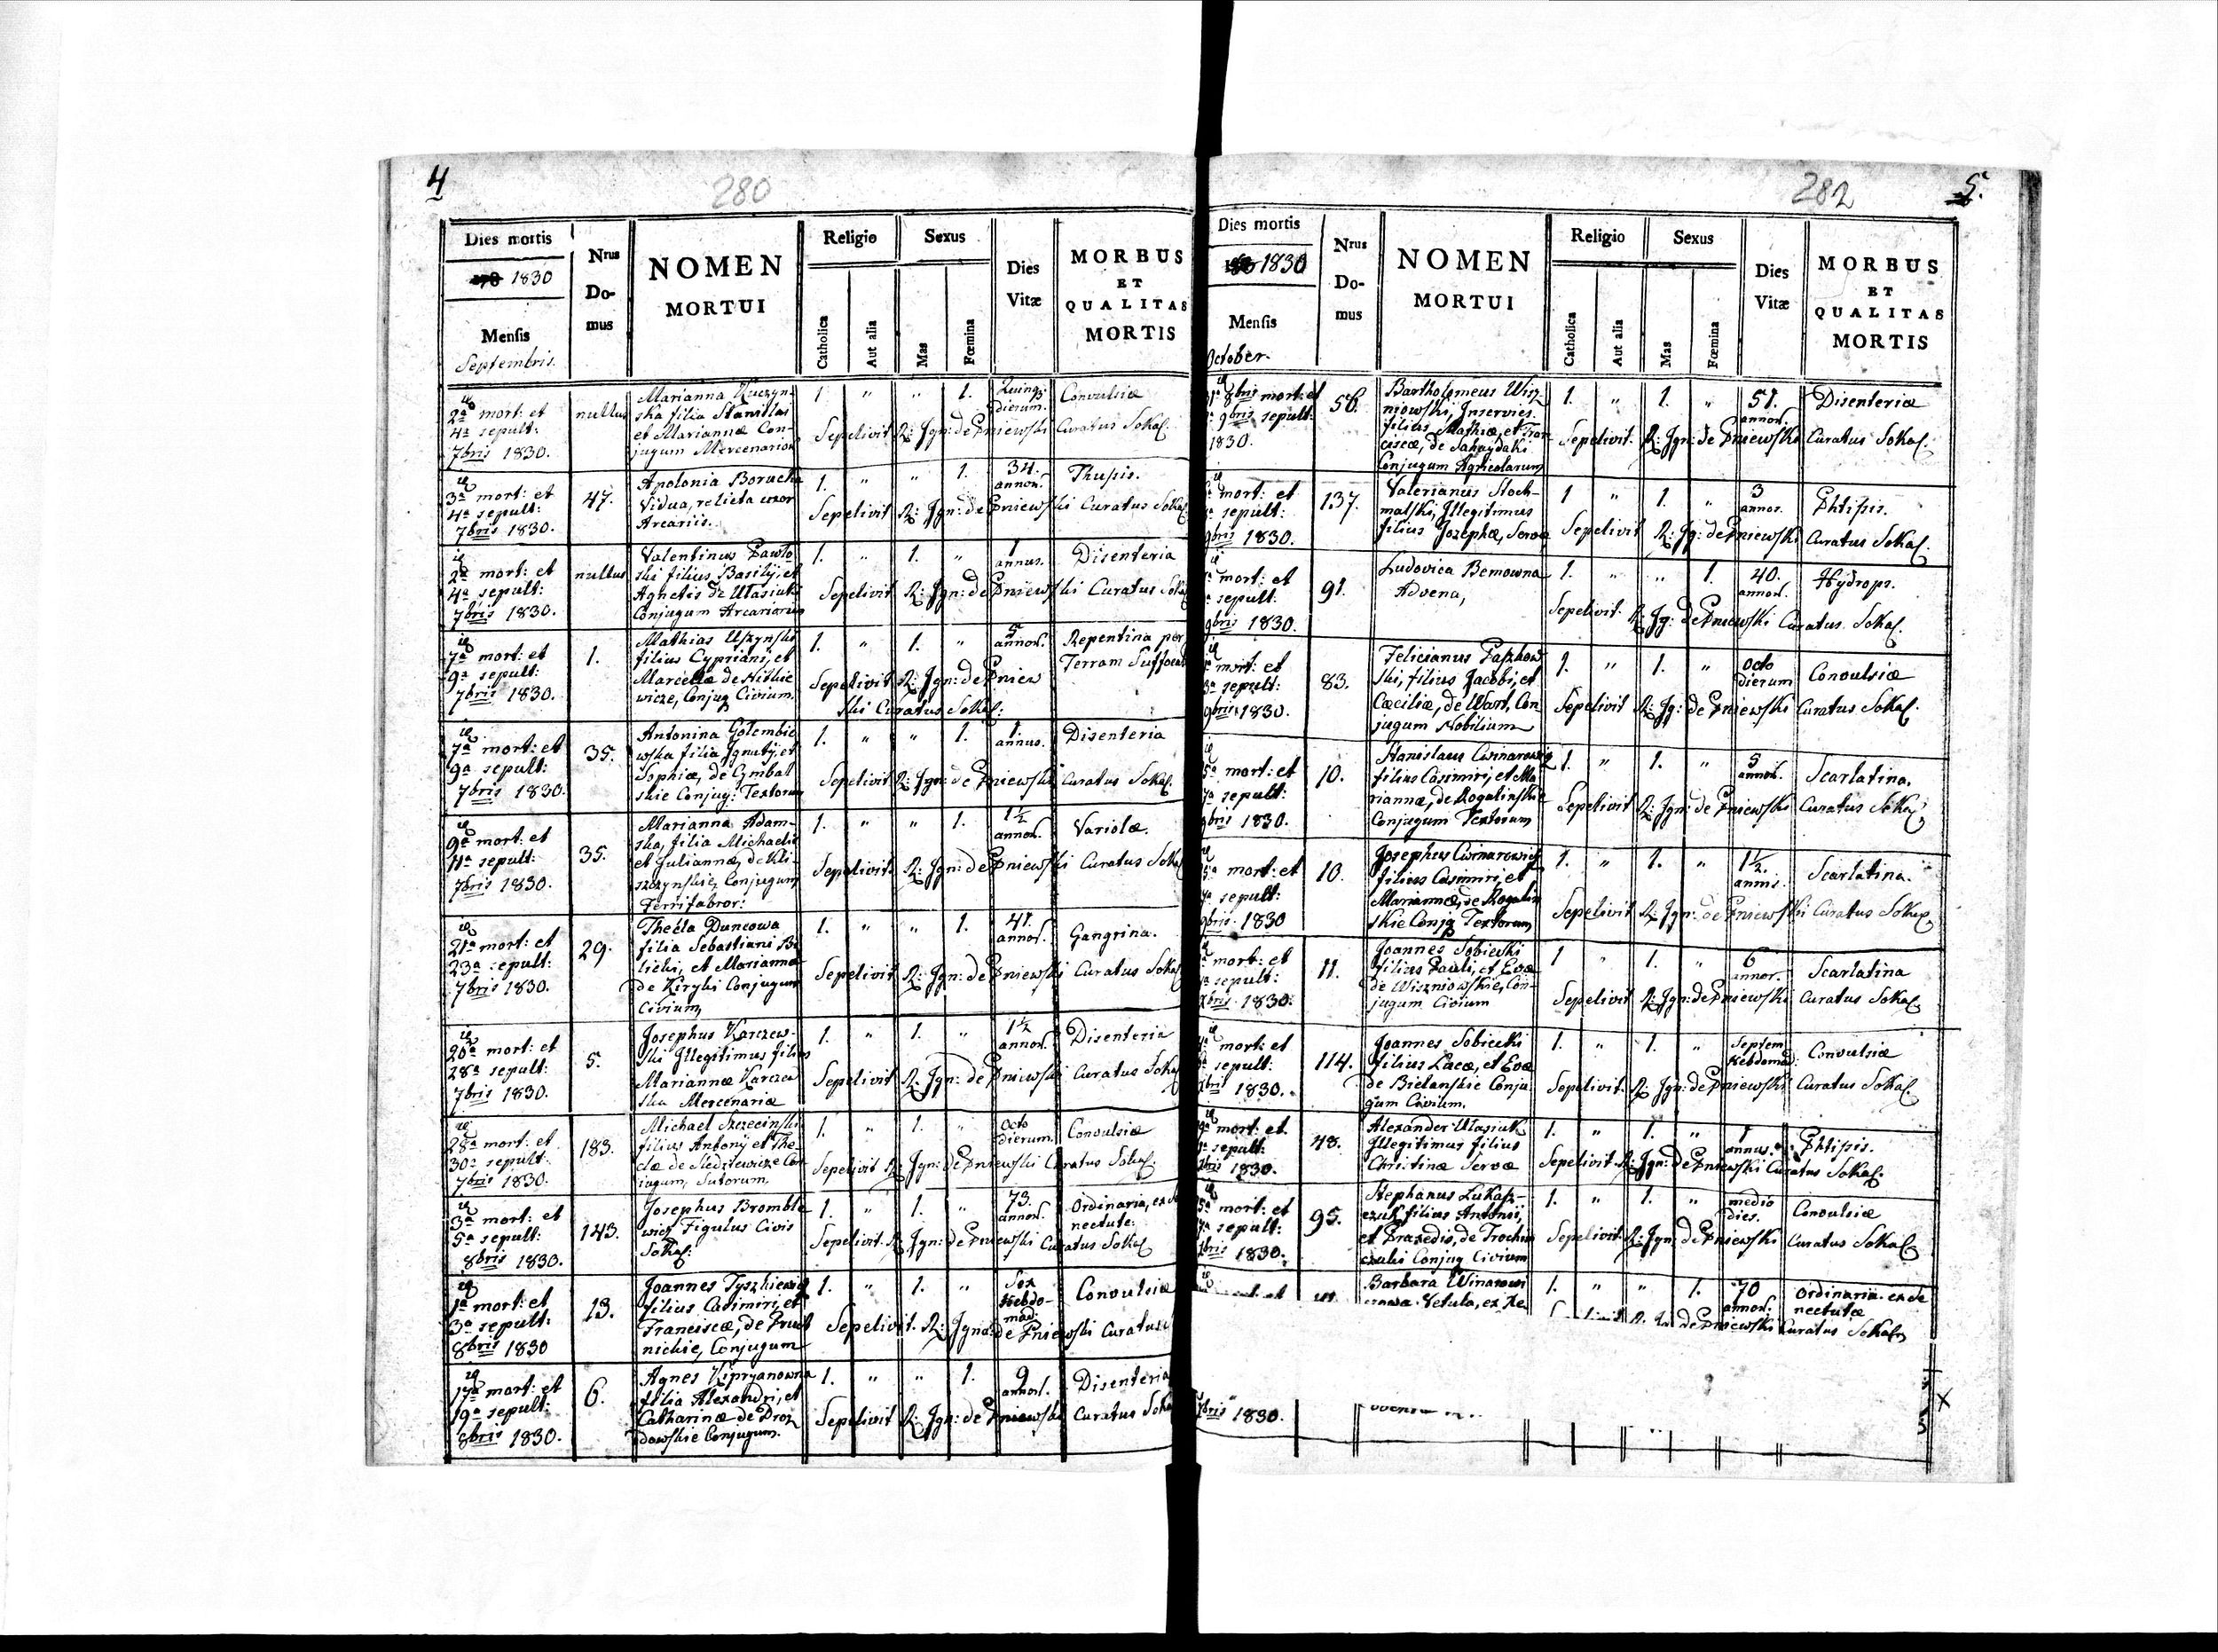 4
280
Dies mortis
1830
Mensis
Septembris.
Nrus
Do-
mus
NOMEN
MORTUI
Religio
Catholica
Aut alia
Sexus
Mas
Fœmina
Dies
Vitæ
MORBUS
ET
QUALITAS
MORTIS
2a mort: et
4a sepult:
7bris 1830.
nullus
Marianna Kuczyn-
ska filia Stanislai
et Mariannæ Con-
jugum Mercenarior
1. " " 1.
Quinq;
dierum.
Convulsiæ
Sepelivit R: Jgn: de Pniewski Curatus Sokal:
3a mort: et
4a sepult:
7bris 1830.
47.
Apolonia Borucka
Vidua, relicta uxor
Arcariis.
1. " " 1.
34.
annor.
Thusis.
Sepelivit R: Jgn: de Pniewski Curatus Sokal
2a mort: et
4a sepult:
7bris 1830.
nullus
Valentinus Pawlo
ski filius Basilij, et
Agnetis de Wasiuki
Conjugum Arcariarum
1. " 1. "
1
annus.
Disenteria
Sepelivit R: Jgn: de Pniewski Curatus Sokal
7a mort: et
9a sepult:
7bris 1830.
1.
Mathias Uszynski
filius Cypriani, et
Marcellæ de Nitkie
wicze, Conjug Civium.
1. " 1. "
5
annor.
Repentina per
Terram Suffocat
Sepelivit R: Jgn: de Pniew
ski Curatus Sokal:
7a mort: et
9a sepult:
7bris 1830.
35.
Antonina Golembio
wska filia Jgnatij, et
Sophiæ, de Cymbal
skie Conjug: Textorum
1. " " 1.
1
annus.
Disenteria
Sepelivit R: Jgn: de Pniewski Curatus Sokal.
9a mort: et
11a sepult:
7bris 1830.
35.
Marianna Adam-
ska, filia Michaelis
et Juliannæ, de Kli-
szczynskie, Conjugum
Ferrifabror:
1. " " 1.
1½
annor.
Variolæ.
Sepelivit. R: Jgn: de Pniewski Curatus Sokal
21a mort: et
23a sepult:
7bris 1830.
29.
Thecla Duncowa
filia Sebastiani Bi
licki, et Mariannæ
de Kiryki Conjugum
Civium,
1. " " 1.
41.
annor.
Gangrina.
Sepelivit R: Jgn: de Pniewski Curatus Sokal
20a mort: et
28a sepult:
7bris 1830.
5.
Josephus Karczew-
ski Jllegitimus filius
Mariannæ Karczew
ska Mercenariæ
1. " 1. "
1½
annor.
Disenteria
Sepelivit R: Jgn: de Pniewski Curatus Sokal
28a mort: et
30a sepult:
7bris 1830.
183.
Michael Szczecinski
filius Antonij et The
clæ de Sledziewicze Con
jugum, Sutorum.
1. " 1. "
Octo
dierum.
Convulsiæ
Sepelivit R: Jgn: de Pniewski Curatus Sokal.
3a mort: et
5a sepult:
8bris 1830.
143.
Josephus Bromble
wicz Figulus Civis
Sokal:
1. " 1. "
73.
annor.
Ordinaria, ex se
nectute.
Sepelivit. R: Jgn: de Pniewski Curatus Sokal
1a mort: et
3a sepult:
8bris 1830
13.
Joannes Tyszkiewicz
filius Casimiri, et
Franciscæ, de Pruch
nickie, Conjugum
1. " 1. "
Sex
hebdo-
mad.
Convulsiæ
Sepelivit. R: Jgna: de Pniewski Curatus
17a mort: et
19a sepult:
8bris 1830.
6.
Agnes Kipryanowna
filia Alexandri, et
Catharinæ de Droz
dowskie Conjugum.
1. " " 1.
9
annor.
Disenteria
Sepelivit R: Jgn: de Pniewski Curatus Sokal
282
5.
Dies mortis
1830
Mensis
October.
Nrus
Do-
mus
NOMEN
MORTUI
Religio
Catholica
Aut alia
Sexus
Mas
Fœmina
Dies
Vitæ
MORBUS
ET
QUALITAS
MORTIS
8bris mort: et
9bris sepult:
1830.
56.
Bartholomeus Wisz
niowski, Jnserviens.
filius Mathiæ, et Fran
ciscæ, de Sahaydaki
Conjugum Agricolarum
1. " 1. "
51.
annor.
Disenteriæ
Sepelivit. R: Jgn: de Pniewski Curatus Sokal.
mort: et
sepult:
9bris 1830.
137.
Valerianus Stoch-
malski, Jllegitimus
filius Josephæ, Servæ
1 " 1. "
3
annor.
Phtisis.
Sepelivit R: Jg: de Pniewski Curatus Sokal.
mort: et
sepult:
9bris 1830.
91.
Ludovica Bemowna
Advena,
1. " " 1.
40.
annor.
Hydrops.
Sepelivit. R: Jg: de Pniewski Curatus Sokal.
mort: et
sepult:
9bris 1830.
83.
Felicianus Paszkow
ski, filius Jacobi, et
Cæciliæ, de Wart, Con
jugum Nobilium
1. " 1. "
Octo
dierum
Convulsiæ
Sepelivit R: Jg: de Pniewski Curatus Sokal.
mort: et
sepult:
9bris 1830.
10.
Stanislaus Cwinarowicz
filius Casimiri, et Ma
riannæ, de Rogalinskie
Conjugum Textorum
1. " 1. "
5
annor.
Scarlatina.
Sepelivit R: Jgn: de Pniewski Curatus Sokal
mort: et
sepult:
9bris 1830
10.
Josephus Cwinarowicz
filius Casimiri, et
Mariannæ, de Rogalin
skie Conjg Textorum
1. " 1. "
1½
annis.
Scarlatina.
Sepelivit R: Jgn: de Pniewski Curatus Sokal
mort: et
sepult:
1830.
11.
Joannes Sobieski
filius Pauli, et Evæ
de Wiszniowskie, Con-
jugum Civium
1 " 1. "
6
annor.
Scarlatina
Sepelivit R: Jgn: de Pniewski Curatus Sokal
mort: et
sepult:
1830.
114.
Joannes Sobiecki
filius Lucæ, et Evæ
de Bielanskie Conju
gum Civium.
1. " 1. "
Septem
hebdomad.
Convulsiæ
Sepelivit. R: Jgn: de Pniewski Curatus Sokal.
mort: et
sepult:
1830.
48.
Alexander Wasiuk
Jllegitimus filius
Christinæ Servæ
1. " 1. "
1
annus.
Phtisis.
Sepelivit. R: Jgn: de Pniewski Curatus Sokal.
mort: et
sepult:
1830.
95.
Stephanus Lukasz-
czuk filius Antonii,
et Praxedis, de Trochim
czuki Conjug Civium
1. " 1. "
medio
dies.
Convulsiæ
Sepelivit. R: Jgn: de Pniewski Curatus Sokal
Barbara Winarowi
czowa. Vetula, ex Xe
1. " " 1.
70
annor.
Ordinaria. ex se
nectutæ
de Pniewski Curatus Sokal
bris 1830.
X